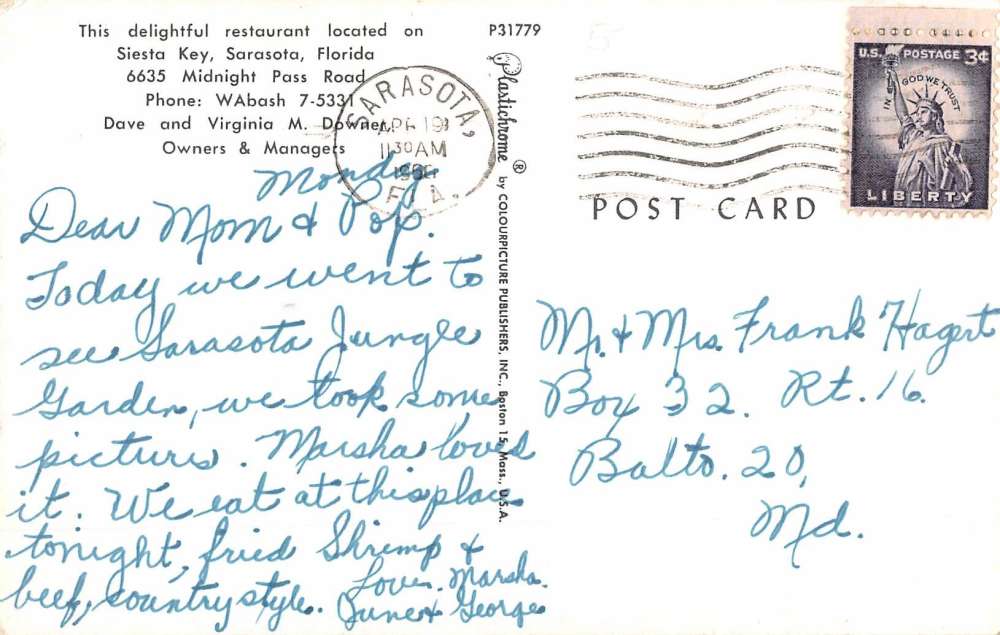 This delightful restaurant located on
Siesta Key, Sarasota, Florida
6635 Midnight Pass Road
Phone: WAbash 7-5331
Dave and Virginia M. Downer,
Owners & Managers
P31779
Plastichrome ® by COLOURPICTURE PUBLISHERS, INC., Boston 15, Mass., U.S.A.
SARASOTA,
APR 19
11 30 AM
FLA.
U.S. POSTAGE 3¢
IN GOD WE TRUST
LIBERTY
POST CARD
Monday
Dear Mom & Pop.
Today we went to
see Sarasota Jungle
Garden, we took some
pictures. Marsha loved
it. We eat at this place
tonight, fried Shrimp &
beef, country style.
Love. Marsha.
June & George
Mr. & Mrs. Frank Hagert
Box 32. Rt. 16.
Balto. 20,
Md.